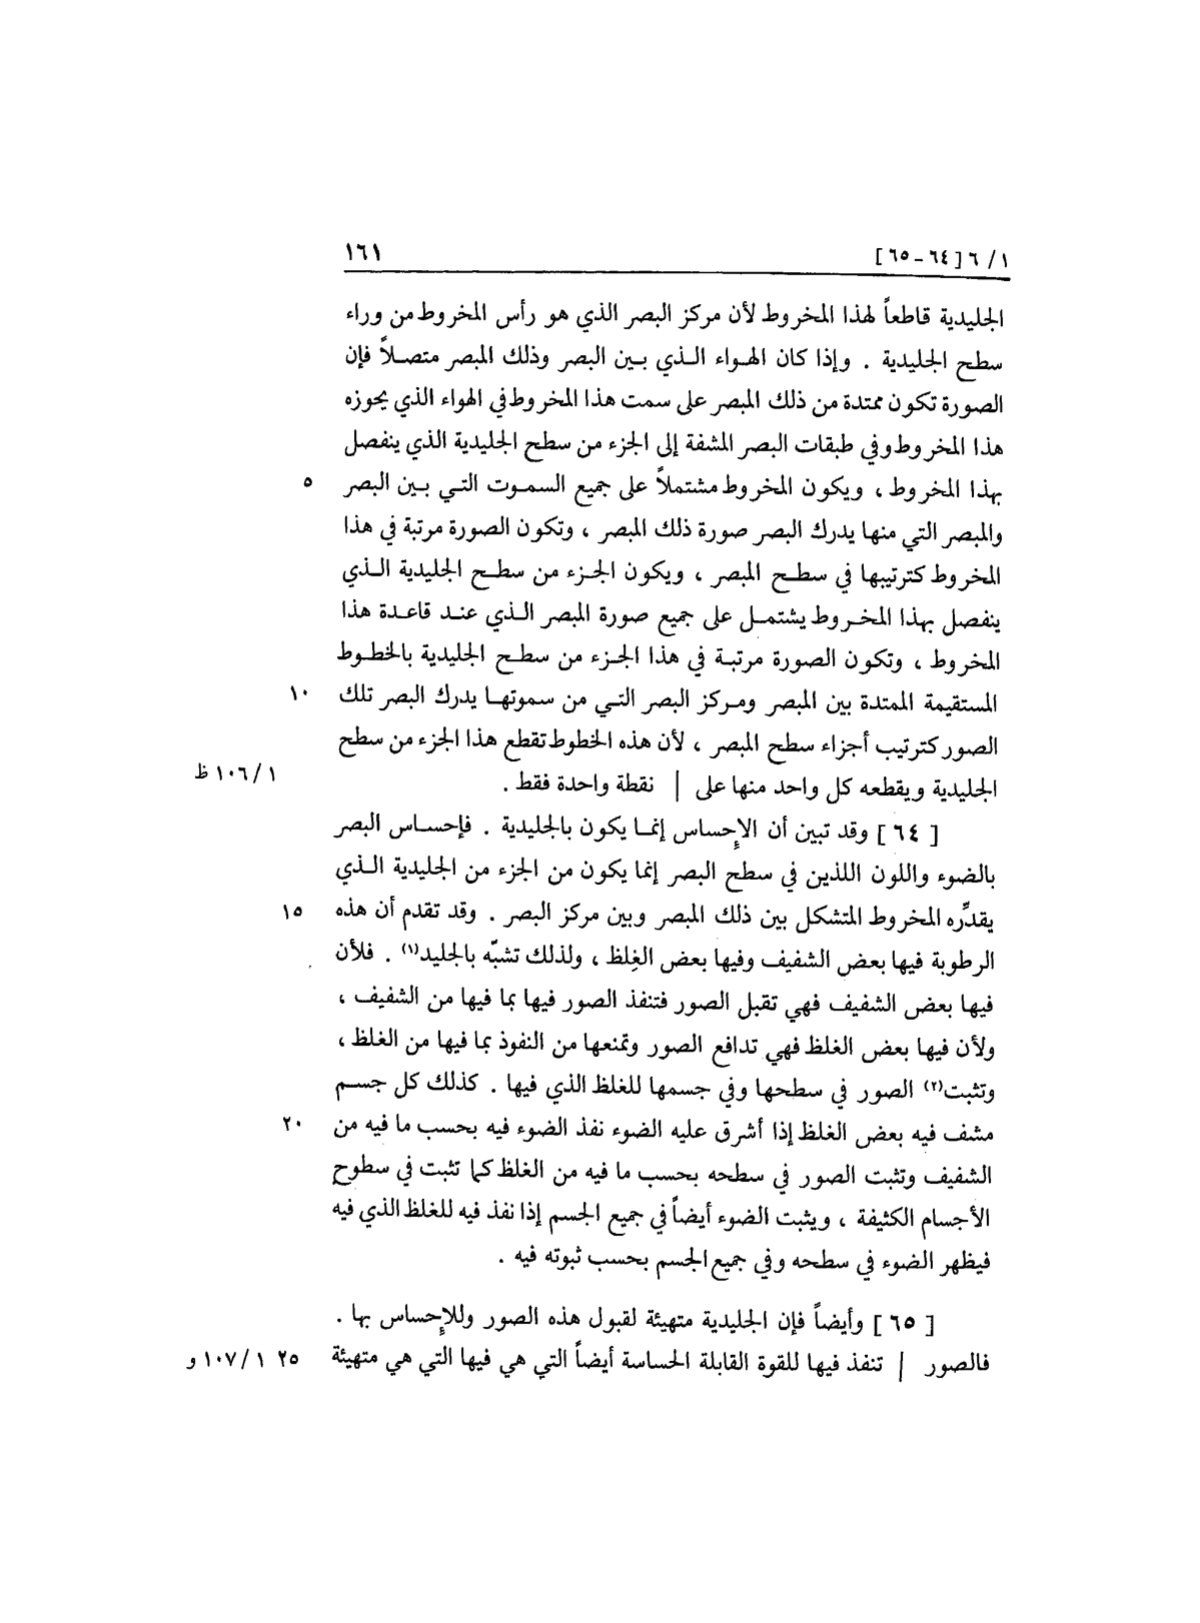 ١ / ٦ [ ٦٤ - ٦٥ ] ١٦١
الجليدية قاطعاً لهذا المخروط لأن مركز البصر الذي هو رأس المخروط من وراء
سطح الجليدية . وإذا كان الهواء الذي بين البصر وذلك المبصر متصلاً فإن
الصورة تكون ممتدة من ذلك المبصر على سمت هذا المخروط في الهواء الذي يحوزه
هذا المخروط وفي طبقات البصر المشفة إلى الجزء من سطح الجليدية الذي ينفصل
بهذا المخروط ، ويكون المخروط مشتملاً على جميع السموت التي بين البصر ٥
والمبصر التي منها يدرك البصر صورة ذلك المبصر ، وتكون الصورة مرتبة في هذا
المخروط كترتيبها في سطح المبصر ، ويكون الجزء من سطح الجليدية الذي
ينفصل بهذا المخروط يشتمل على جميع صورة المبصر الذي عند قاعدة هذا
المخروط ، وتكون الصورة مرتبة في هذا الجزء من سطح الجليدية بالخطوط
المستقيمة الممتدة بين المبصر ومركز البصر التي من سموتها يدرك البصر تلك ١٠
الصور كترتيب أجزاء سطح المبصر ، لأن هذه الخطوط تقطع هذا الجزء من سطح
الجليدية ويقطعه كل واحد منها على | نقطة واحدة فقط . ١ / ١٠٦ ظ
[ ٦٤ ] وقد تبين أن الإحساس إنما يكون بالجليدية . فإحساس البصر
بالضوء واللون اللذين في سطح البصر إنما يكون من الجزء من الجليدية الذي
يقدِّره المخروط المتشكل بين ذلك المبصر وبين مركز البصر . وقد تقدم أن هذه ١٥
الرطوبة فيها بعض الشفيف وفيها بعض الغِلظ ، ولذلك تشبّه بالجليد(١) . فلأن
فيها بعض الشفيف فهي تقبل الصور فتنفذ الصور فيها بما فيها من الشفيف ،
ولأن فيها بعض الغلظ فهي تدافع الصور وتمنعها من النفوذ بما فيها من الغلظ ،
وتثبت(٢) الصور في سطحها وفي جسمها للغلظ الذي فيها . كذلك كل جسم
مشف فيه بعض الغلظ إذا أشرق عليه الضوء نفذ الضوء فيه بحسب ما فيه من ٢٠
الشفيف وتثبت الصور في سطحه بحسب ما فيه من الغلظ كما تثبت في سطوح
الأجسام الكثيفة ، ويثبت الضوء أيضاً في جميع الجسم إذا نفذ فيه للغلظ الذي فيه
فيظهر الضوء في سطحه وفي جميع الجسم بحسب ثبوته فيه .
[ ٦٥ ] وأيضاً فإن الجليدية متهيئة لقبول هذه الصور وللإحساس بها .
فالصور | تنفذ فيها للقوة القابلة الحساسة أيضاً التي هي فيها التي هي متهيئة ٢٥ ١ / ١٠٧ و